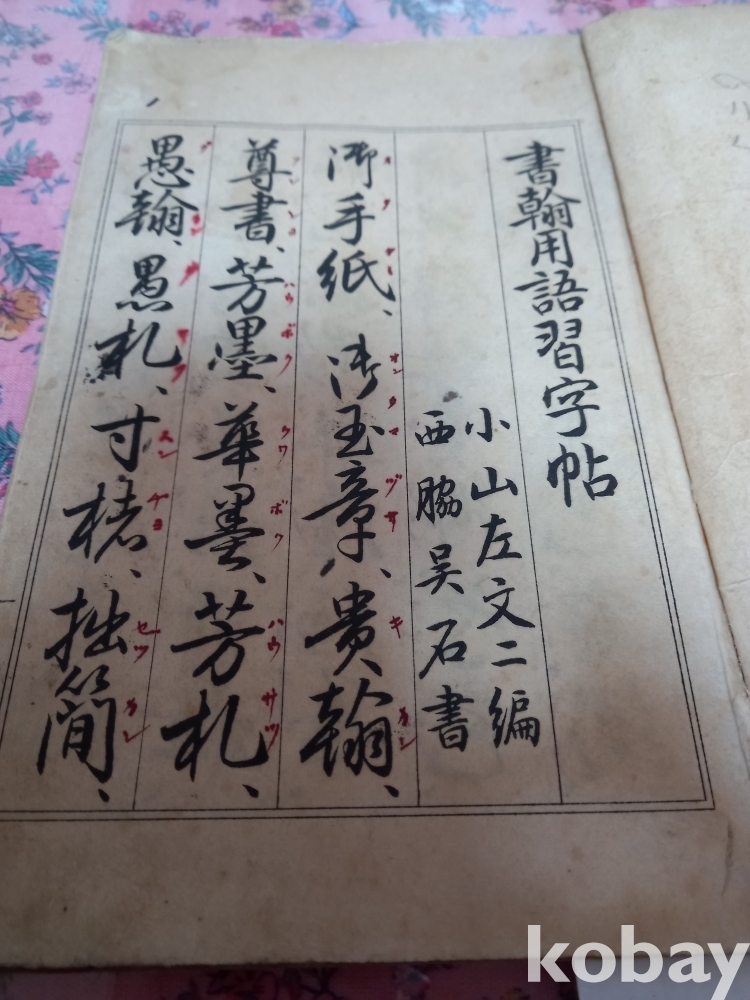 書翰用語習字帖
小山左文二編
西脇呉石書
御手紙、御玉章、貴翰、
尊書、芳墨、華墨、芳札、
愚翰、愚札、寸楮、拙簡、
kobay